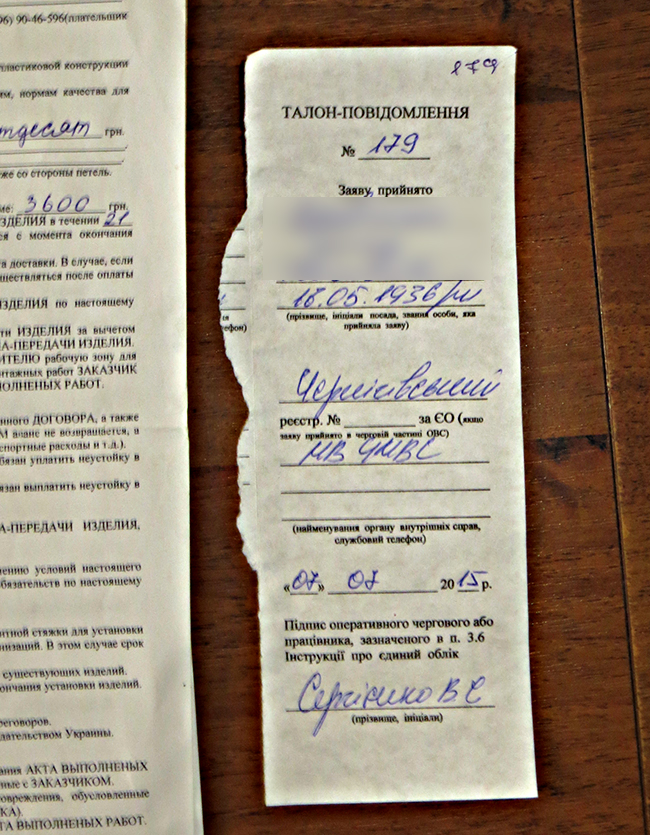 96) 90-46-596(плательщик
пластиковой конструкции
им, нормам качества для
тдесят грн.
же со стороны петель.
ме: 3600 грн.
ЗДЕЛИЯ в течении 21
ся с момента окончания
а доставки. В случае, если
ществляться после оплаты
ИЗДЕЛИЯ по настоящему
ти ИЗДЕЛИЯ за вычетом
А-ПЕРЕДАЧИ ИЗДЕЛИЯ.
ИТЕЛЮ рабочую зону для
онтажных работ ЗАКАЗЧИК
ПОЛНЕНЫХ РАБОТ.
енного ДОГОВОРА, а также
М аванс не возвращается, а
спортные расходы и т.д.).
бязан уплатить неустойку в
язан выплатить неустойку в
А-ПЕРЕДАЧИ ИЗДЕЛИЯ,
ению условий настоящего
бязательств по настоящему
нтной стяжки для установки
низаций. В этом случае срок
существующих изделий.
ончания установки изделий.
реговоров.
дательством Украины.
ания АКТА ВЫПОЛНЕНЫХ
ные с ЗАКАЗЧИКОМ.
овреждения, обусловленные
КА).
ТА ВЫПОЛНЕНЫХ РАБОТ.
179
ТАЛОН-ПОВІДОМЛЕННЯ
№ 179
Заяву, прийнято
18.05.1936
(прізвище, ініціали посада, звання особи, яка
прийняла заяву)
ефон)
Чернігівський
реєстр. № за ЄО (якщо
заяву прийнято в черговій частині ОВС)
МВ УМВС
(найменування органу внутрішніх справ,
службовий телефон)
«07» 07 2015 р.
Підпис оперативного чергового або
працівника, зазначеного в п. 3.6
Інструкції про єдиний облік
Сергієнко В.С
(прізвище, ініціали)